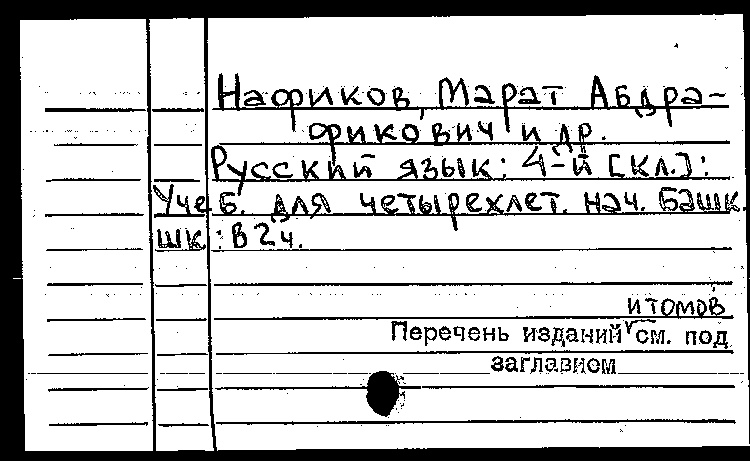 Нафиков, Марат Абдра-
фикович и др.
Русский язык: 4-й [кл.]:
Учеб. для четырехлет. нач. башк.
шк.: в 2 ч.
и томов
Перечень изданий см. под
заглавием